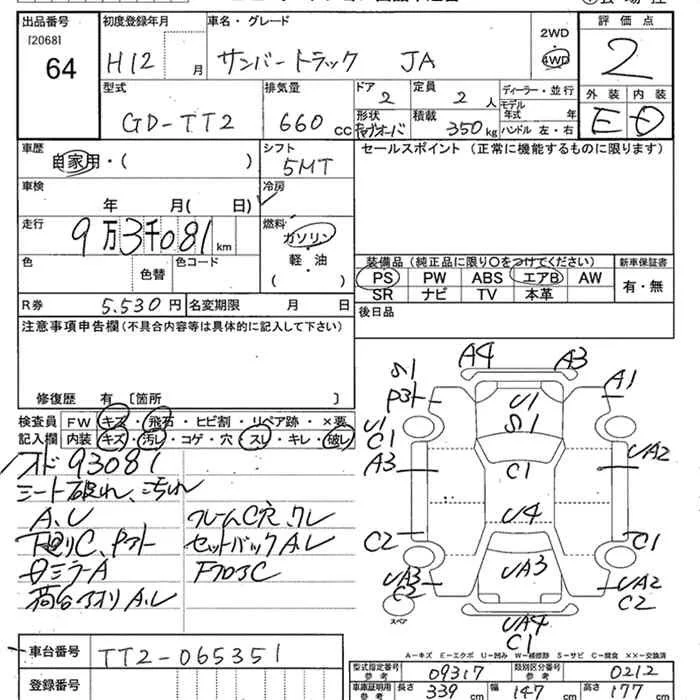 出品番号 初度登録年月 車名・グレード 2WD 評価点
[2068]
64 H12 月 サンバートラック JA 4WD 2
型式 排気量 ドア 定員 ディーラー・並行 外装 内装
2 2 人 モデル年式 年
GD-TT2 660 cc 形状 積載 350 kg ハンドル 左・右 E D
車歴 自家用・( ) シフト 5MT セールスポイント (正常に機能するものに限ります)
車検 年 月( 日) 冷房
走行 9万3千081 km 燃料 ガソリン
軽・油
( )
色 色替 色コード
装備品 (純正品に限り○をつけてください) 新車保証書
PS PW ABS エアB AW 有・無
SR ナビ TV 本革
R券 5.530 円 名変期限 月 日 後日品
注意事項申告欄 (不具合内容等は具体的に記入して下さい)
修復歴 有 〔箇所 〕
検査員 FW キズ・飛石・ヒビ割・リペア跡・×要
記入欄 内装 キズ・汚レ・コゲ・穴・スレ・キレ・破レ
メオド 93081
シート破れ、汚れ
A、U フレームC穴、クレ
下回りC、Pアト セットバックA、レ
ミラーA フロアC
荷台アオリA、レ
A4 A3
S1 A1
Pアト U1
S1
U1
C1 UA2
A3 C1
U4
C2 C1
UA3 UA3 UA2
C2 C2
スペア UA4
C1
A=キズ E=エクボ U=凹み W=補修跡 S=サビ C=腐食 XX=交換済
車台番号 TT2-065351
登録番号
型式指定番号 参考 09317 類別区分番号 参考 0212
車庫証明用 参考 長さ 339 cm 幅 147 cm 高さ 177 cm